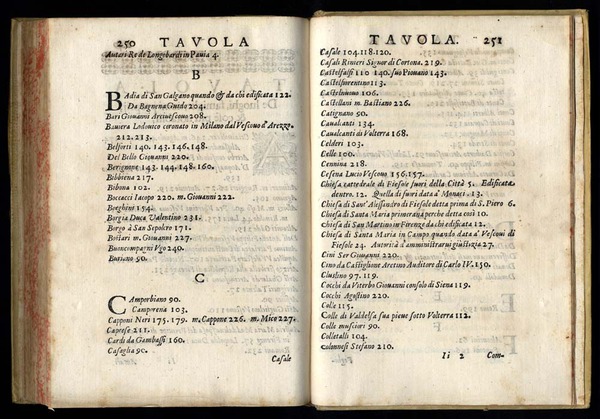 250 TAVOLA
Autari Re de Longobardi in Pauia 4.
B
Badia di San Galgano quando & da chi edificata 122.
Da Bagnena Guido 204.
Bari Giouanni Arciuescouo 208.
Bauera Lodouico coronato in Milano dal Vescouo d'Arezzo.
212.213.
Belforti 140. 143. 146. 148.
Del Bello Giouanni 220.
Berignone 143. 144. 148. 160.
Bibbiena 217.
Bibona 102.
Boccacci Iacopo 220. m. Giouanni 222.
Boeghini 154.
Borgia Duca Valentino 231.
Borgo à San Sepolcro 171.
Bostari m. Giouanni 227.
Buoncompagni Vgo 240.
Buriano 90.
C
Camporbiano 90.
Camprena 103.
Capponi Neri 175. 179. m. Cappone 226. m. Mico 227.
Caprese 211.
Cardi da Gambassi 160.
Casaglia 90.
Casale
TAVOLA. 251
Casale 104.118.120.
Casali Rinieri Signor di Cortona. 219.
Castelfalfi 110 140. suo Piouano 143.
Castelfiorentino 113.
Castelnuouo 106.
Castellani m. Bastiano 226.
Catignano 90.
Caualcanti 134.
Caualcanti di Volterra 168.
Celderi 103.
Celle 100.
Cennina 218.
Cesena Lucio Vescouo 156.157.
Chiesa cattedrale di Fiesole fuori della Città 5. Edificata
dentro. 12. Quella di fuori data a' Monaci. 13.
Chiesa di Sant'Alessandro di Fiesole detta prima di S. Piero 6.
Chiesa di Santa Maria primerana perche detta così 10.
Chiesa di San Martino in Firenze da chi edificata 12.
Chiesa di Santa Maria in Campo quando data a' Vescoui di
Fiesole 24. Autorità d'amministrarui giustizia 27.
Cini Ser Giouanni 220.
Cino da Castiglione Aretino Auditore di Carlo IV. 150.
Cluslino 97. 119.
Cocchi da Viterbo Giouanni consolo di Siena 119.
Cocchi Agostino 220.
Colle 115.
Colle di Valdelsa sua pieue sotto Volterra 112.
Colle musciori 90.
Colletalli 104.
Colonnesi Stefano 210.
Ii 2 Com-